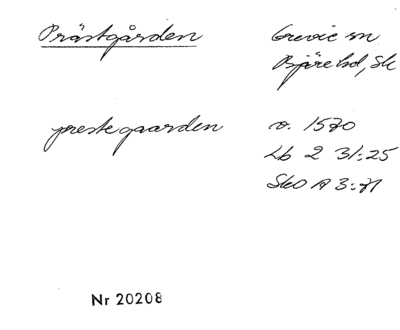 Prästgården
Grevie sn
Bjäre hd, Sk
prestegaarden
v. 1570
Lb 2 31:25
SkO A 3:71
Nr 20208